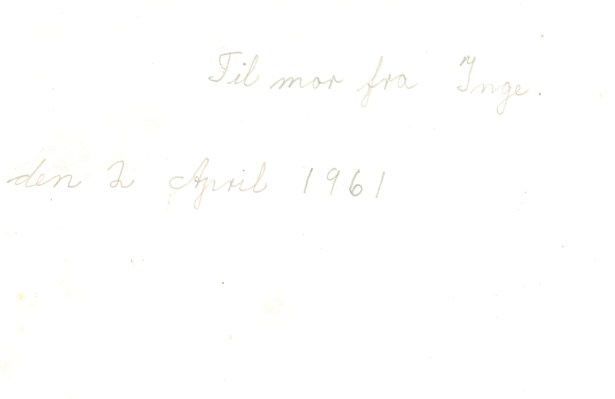 Til mor fra Inge.
den 2 April 1961